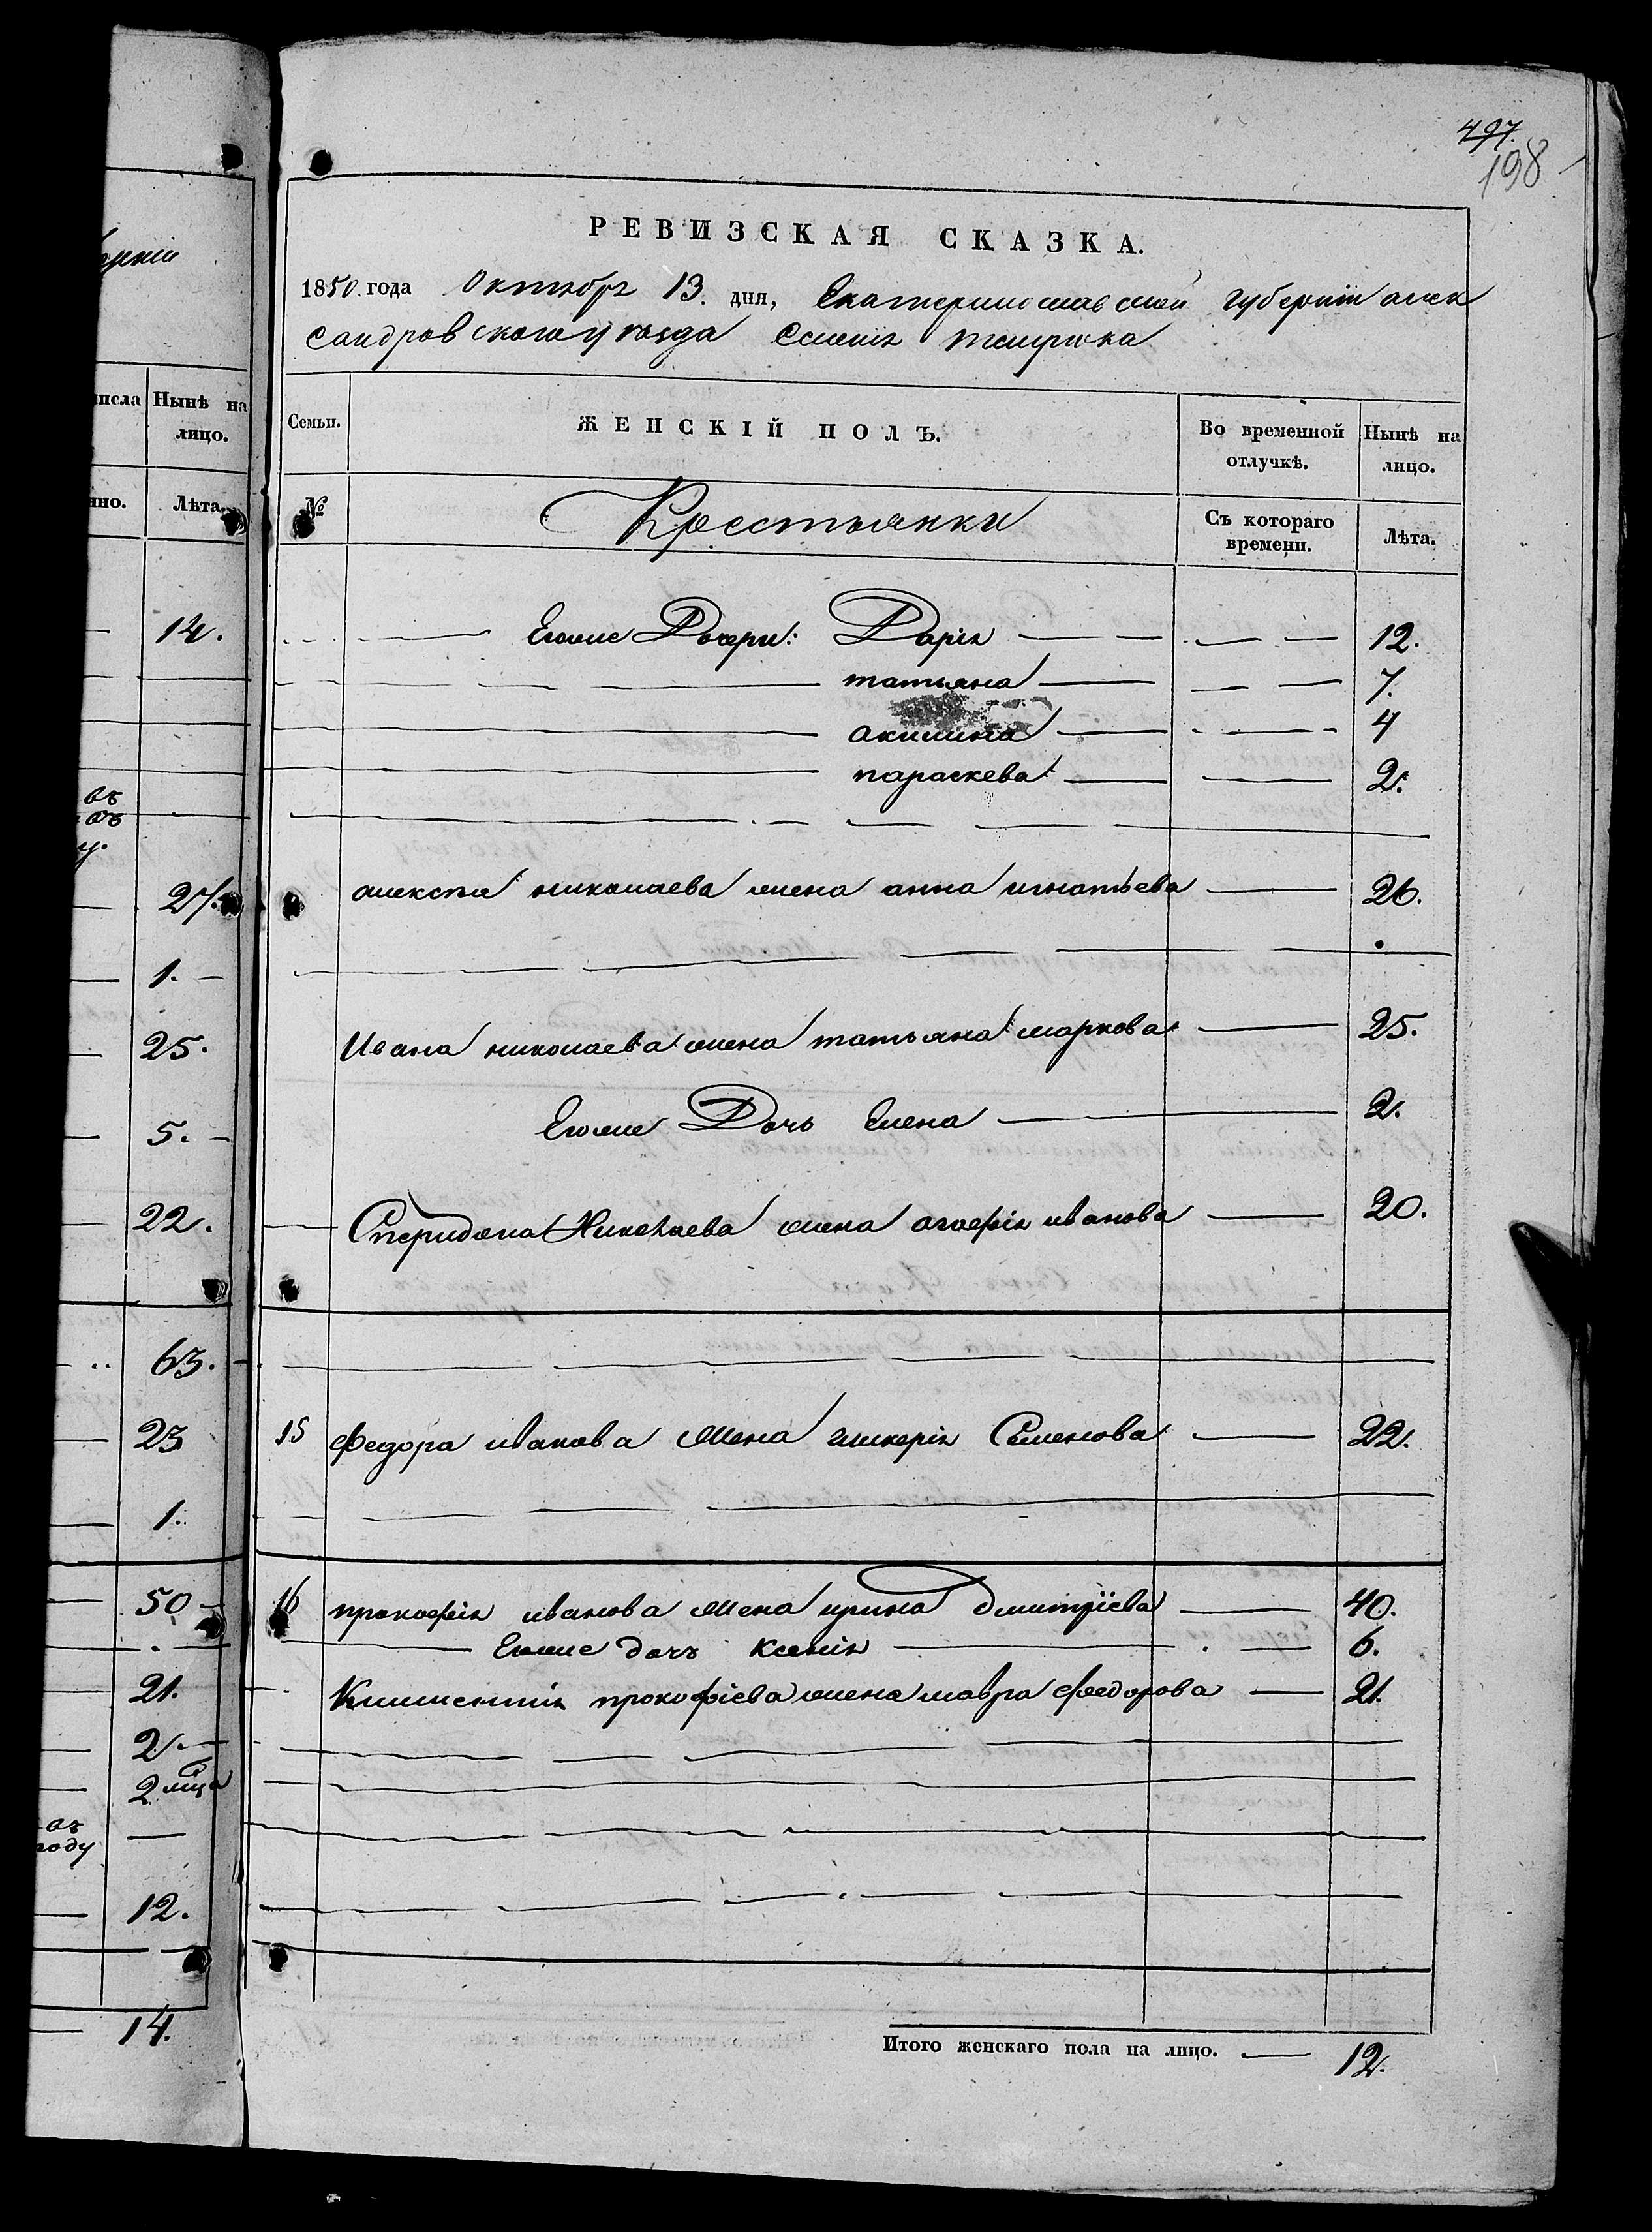 497.
198
РЕВИЗСКАЯ СКАЗКА.
1850 года Октября 13. дня, Екатеринославской губерніи алек
сандровского уѣзда Селенія темрюка
Семьи.
ЖЕНСКІЙ ПОЛЪ.
Во временной отлучкѣ.
Нынѣ на лицо.
№
Крестьянки
Съ котораго времени.
Лѣта.
Нынѣ на лицо.
Лѣта.
Егоже Дочери: Дарія 12.
татьяна 7.
акилина 4
параскева 2.
алексѣя николаева жена анна игнатьева 26.
Ивана николаева жена татьяна маркова 25.
Егоже Дочь Елена 2.
Спиридона Николаева жена агафія иванова 20.
15 федора иванова жена гликерія Семенова 22.
16 прокофія иванова жена ирина дмитріева 40.
Егоже дочь Ксенія 6.
Климентія прокофіева жена мавра федорова 21.
Итого женскаго пола на лицо. 12.
14.
въ
27.
1.
25.
5.
22.
63.
23
1.
50
21.
2.
2 мца
въ
году
12.
14.